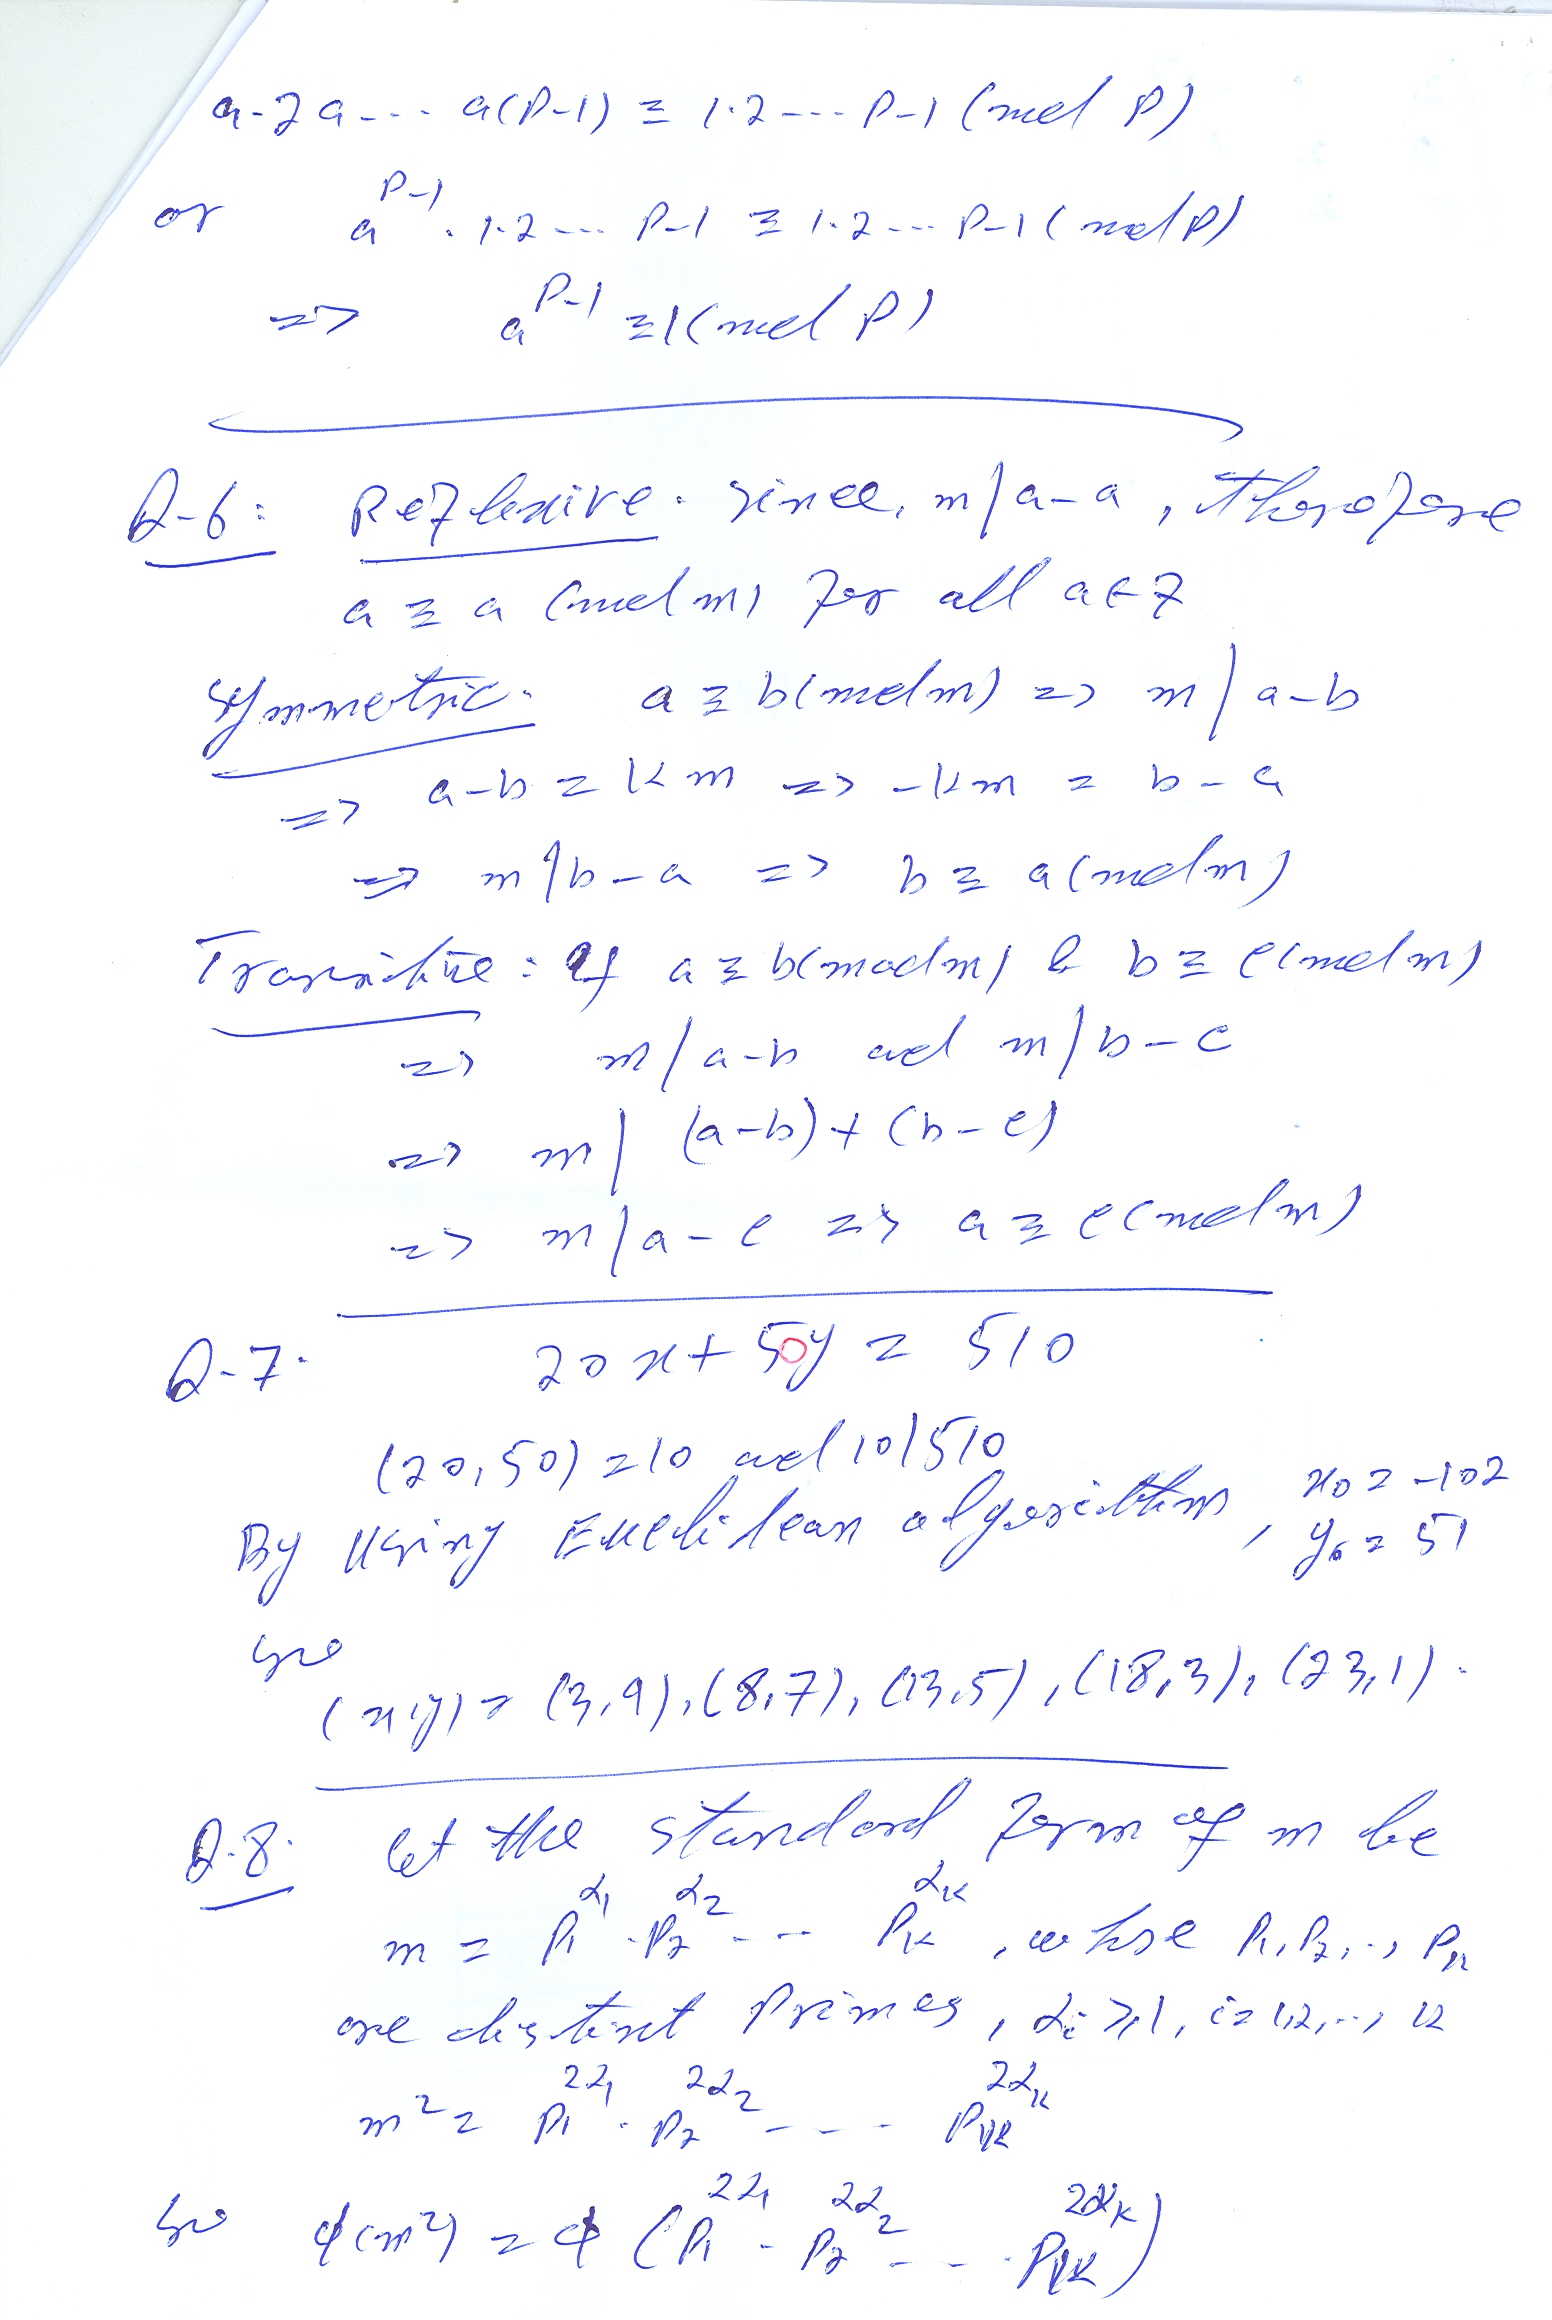 a.2a... a(P-1) ≡ 1.2... P-1 (mod P)
or a^{P-1}. 1.2... P-1 ≡ 1.2... P-1 (mod P)
=> a^{P-1} ≡ 1 (mod P)
Q-6: Reflexive. Since, m/a-a, therefore
a ≡ a (mod m) for all a ∈ Z
Symmetric. a ≡ b (mod m) => m/a-b
=> a-b = km => -km = b-a
=> m/b-a => b ≡ a (mod m)
Transitive: If a ≡ b (mod m) & b ≡ c (mod m)
=> m/a-b and m/b-c
=> m/(a-b)+(b-c)
=> m/a-c => a ≡ c (mod m)
Q-7. 20x + 50y = 510
(20,50) = 10 and 10/510
By using Euclidean algorithm, x₀ = -102
y₀ = 51
So
(x,y) = (3,9), (8,7), (13,5), (18,3), (23,1).
Q.8. Let the standard form of m be
m = P₁^{α₁}.P₂^{α₂}... P_k^{α_k}, whose P₁, P₂, .., P_k
are distinct Primes, α_i ≥ 1, i = 1,2,.., k
m² = P₁^{2α₁}.P₂^{2α₂}.... P_k^{2α_k}
So ϕ(m²) = ϕ(P₁^{2α₁}.P₂^{2α₂}... P_k^{2α_k})